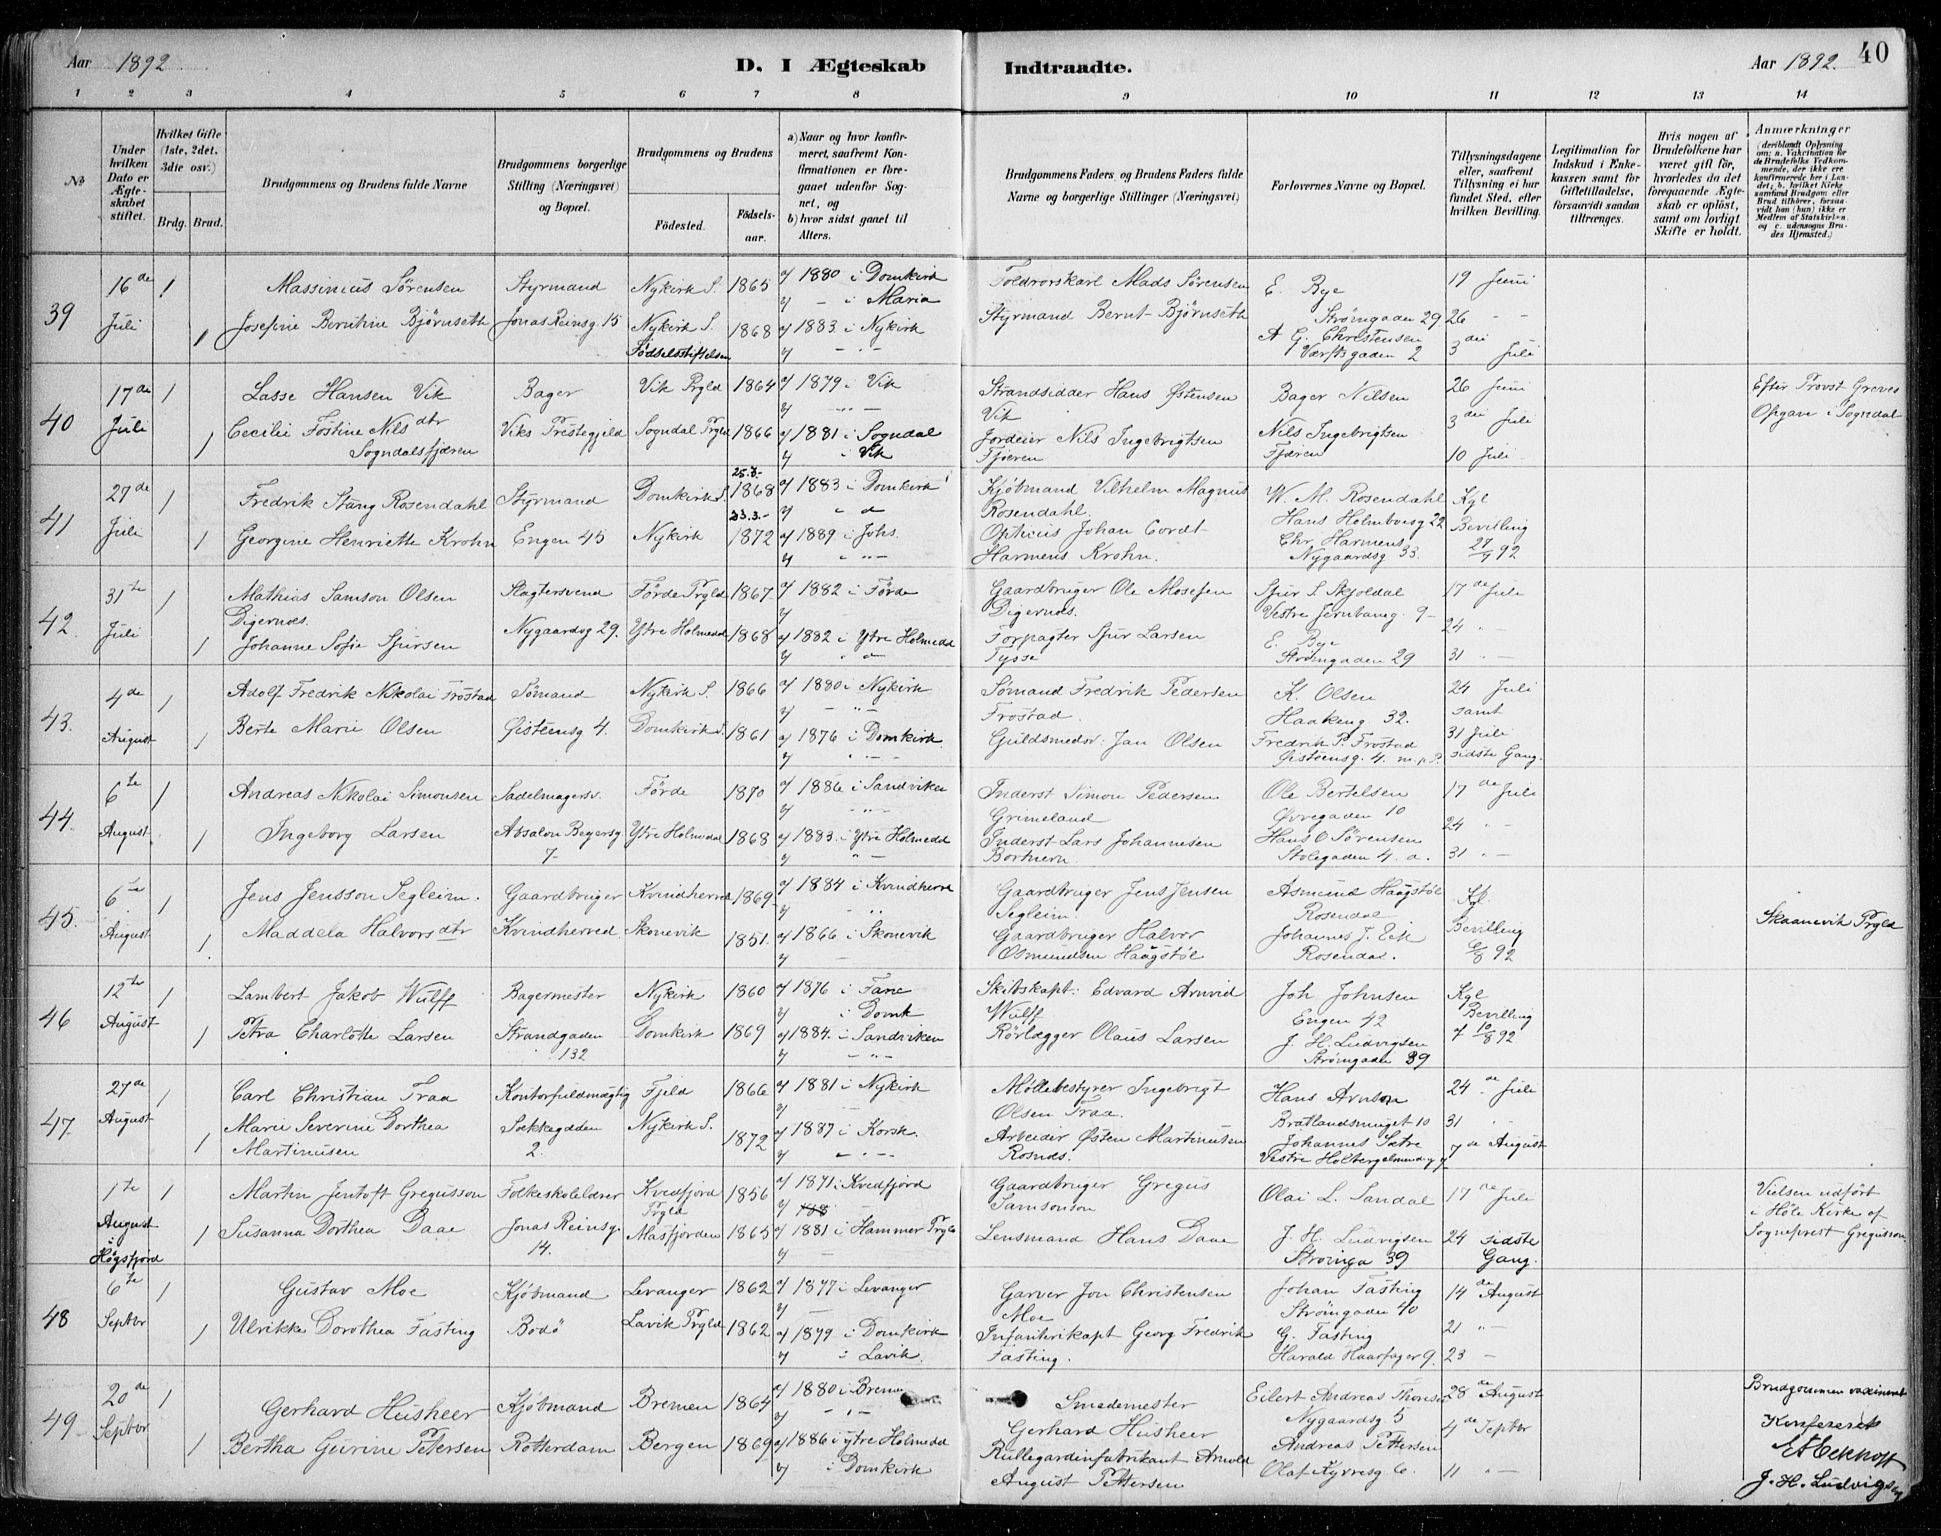 Aar 1892
D. I Ægteskab
Indtraadte.
Aar 1892.
40
1 2 3 4 5 6 7 8
9 10 11 12 13 14
No
Under hvilken Dato er Ægteskabet stiftet.
Hvilket Gifte (1ste, 2det, 3die osv.)
Brdg. Brud.
Brudgommens og Brudens fulde Navne
Brudgommens borgerlige Stilling (Næringsvei) og Bopæl.
Brudgommens og Brudens
Fødested.
Fødselsaar.
a) Naar og hvor konfirmeret, saafremt Konfirmationen er foregaaet udenfor Sognet, og
b) hvor sidst gaaet til Alters.
Brudgommens Faders og Brudens Faders fulde Navne og borgerlige Stillinger (Næringsvei)
Forlovernes Navne og Bopæl.
Tillysningsdagene eller, saafremt Tillysning ei har fundet Sted, efter hvilken Bevilling.
Legitimation for Indskud i Enkekassen samt for Giftetilladelse, forsaavidt saadan tiltrænges.
Hvis nogen af Brudefolkene har været gift før, hvorledes da det foregaaende Ægteskab er opløst, samt om lovligt Skifte er holdt.
Anmærkninger (deriblandt Oplysning om: a. Vakcination for de Brudefolks Vedkommende, der ikke ere konfirmerede her i Landet; b. hvilket Kirkesamfund Brudgom eller Brud tilhører, forsaavidt han (hun) ikke er Medlem af Statskirken, og c. udensogns Brudes Hjemsted.)
39 16de Juli 1 1
Massinius Sørensen Styrmand Nykirk S. 1865 a) 1880 i Domkirk b) - i Maria
Josefine Berntine Bjørnseth Jonas Reinsg. 15 Nykirk S. Fødselsstiftelsen 1868 a) 1883 i Nykirk b) - " -
Toldrorskarl Mads Sørensen
Styrmand Bernt Bjørnseth
E. Bye Strømgaden 29
A G. Christensen Værftsgaden 2
19 Juni 26 - - 3die Juli
40 17de Juli 1 1
Lasse Hansen Vik Bager Vik Prgld 1864 a) 1879 i Vik b) " -
Cecilie Fostine Nilsdtr Sogndalsfjæren Viks Præstegjeld Sogndal Prgld 1866 a) 1881 i Sogndal b) i Vik
Strandsidder Hans Østensen Vik
Jordeier Nils Ingebrigtsen Fjæren
Bager Nilsen
Nils Ingebrigtsen Fjæren
26 Juni 3die Juli 10 Juli
Efter Provst Greves Opgave i Sogndal
41 27de Juli 1 1
Fredrik Stang Rosendahl Styrmand Domkirk S. 1868 a) 1883 i Domkirk b) " d
Georgine Henriette Krohn Engen 45 Nykirk 23.3.- 1872 a) 1889 i Johs. b) " " -
Kjøbmand Vilhelm Magnus Rosendahl.
Opticus Johan Cordt Harmens Krohn.
W. M. Rosendahl Hans Holmboesg 22
Chr. Harmens Nygaardsg 33.
Kgl Bevilling 92
42. 31te Juli 1 1
Mathias Samson Olsen Digernæs. Slagtersvend Førde Prgld 1867 a) 1882 i Førde b) -
Johanne Sofie Sjursen Nygaardsg 29. Ytre Holmedal 1868 a) 1882 i Ytre Holmedal b) " d
Gaardbruger Ole Mosesen Digernæs.
Forpagter Sjur Larsen Tysse
Sjur S. Skjoldal Vestre Jernbaneg. 9 -
E. Bye Strømgaden 29
17de Juli 24 " - 31 " -
43. 4de August 1 1
Adolf Fredrik Nikolai Frostad Sømand Nykirk S. 1866 a) 1880 i Nykirk b) - " -
Berte Marie Olsen Øisteensg 4. Domkirk S. 1861 a) 1876 i Domkirk b) " " -
Sømand Fredrik Pedersen Frostad.
Guldsmedsv: Jan Olsen
K. Olsen Haakeng. 32.
Fredrik P. Frostad Øisteensg. 4. m. p. P.
24 Juli samt 31 Juli sidste Gang.
44. 6te August 1 1
Andreas Nikolai Simonsen Sadelmagersv. Førde 1870 a) 1886 i Sandviken b) " -
Ingeborg Larsen Absalon Beyersg 7 - Ytre Holmedal 1868 a) 1883 i Ytre Holmedal b) " -
Inderst Simon Pedersen Grimeland
Inderst Lars Johannesen Bortnern.
Ole Bertelsen Øvregaden 10
Hans O Sørensen Stølegaden 4. a.
17de Juli 24 " - 31 " -
45. 6te August 1 1
Jens Jensson Segleim. Gaardbruger Kvindherred 1869 a) 1884 i Kvindherred b) " "
Maddela Halvorsdtr Kvindherred Skonevik 1851. a) 1866 i Skonevik b) -
Gaardbruger Jens Jensen Segleim.
Gaardbruger Halvor Osmundsen Haugstøl
Asmund Haugstøl Rosendal
Johannes J. Eik Rosendal.
Kgl. Bevilling 6/8 92
Skaanevik Prgld
46 12te August 1 1
Lambert Jakob Wulff Bagermester Nykirk 1860 a) 1876 i Fane b) i Domk
Petra Charlotte Larsen Strandgaden 132 Domkirk 1869 a) 1884. i Sandviken b) - " -
Skibskapt: Edvard Arnvid Wulff
Rørlægger Olaus Larsen
Joh Johnsen Engen 42
J. H. Ludvigsen Strømgaden 39
Kgl Bevilling af 10/8 92
47. 27de August 1 1
Carl Christian Traa Kontorfuldmægtig Fjeld 1866 a) 1881 i Nykirk b) -
Marie Severine Dorthea Martinusen Sækkegaden 2. Nykirk S. 1872 a) 1887 i Korsk. b) " " -
Møllebestyrer Ingebrigt Olsen Traa.
Arbeider Østen Martinusen Rosnæs.
Hans Arnson Bratlandsmuget 10
Johannes Sætre Vestre Holbergsalmendg 7
24de Juli 31 " 7de August
1te August i Høgsfjord 1 1
Martin Jentoft Gregusson Folkeskolelærer Kvedfjord Prgld 1856 a) 1871 i Kvedfjord b) 188
Susanna Dorthea Daae Jonas Reinsg. 14. Masfjorden 1865 a) 1881 i Hammer Prgld b) -
Gaardbruger Gregus Samsonson
Lensmand Hans Daae
Olai L. Sandal
J. H. Ludvigsen Strømga 39
17de Juli 24 sidste Gang.
Vielsen udført i Høle Kirke af Sogneprest Gregusson.
48 6te Septbr 1 1
Gustav Moe Kjøbmand Levanger 1862 a) 1877 i Levanger b) -
Ulrikke Dorothea Fasting Bodø Lavik Prgld 1862 a) 1879 i Domkirk b) i Lavik.
Garver Jon Christensen Moe
Infanterikapt Georg Fredrik Fasting.
Johan Fasting Strømgaden 40
G. Fasting Harald Haarfager 9.
14de August 21 " - 23 -
49 20de Septbr 1 1
Gerhard Husheer Kjøbmand Bremen 1864 a) 1880 i Bremen b) - " -
Bertha Gurine Petersen Rotterdam Bergen 1869 a) 1886 i ytre Holmedal b) i Domkirk
Smedemester Gerhard Husheer
Rullegardinfabrikant Arnold August Pettersen
Eilert Andreas Thomsen Nygaardsg 5
Andreas Pettersen Olaf Kyrresg 6.
28de August 4de Septbr 11 " -
Brudgommen vaccineret
Konfereret
J. H. Ludvigsen